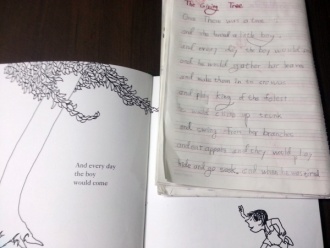 The Giving Tree
Once There was a tree
and she loved a little boy.
and every day the boy would
and he would gather her leaves
and make them in to crowns
and play king of the forest
he would climb up trunk
and swing from her branches
and eat apples and they would play
hide and go seek. and when he was tired
And every day
the boy
would come